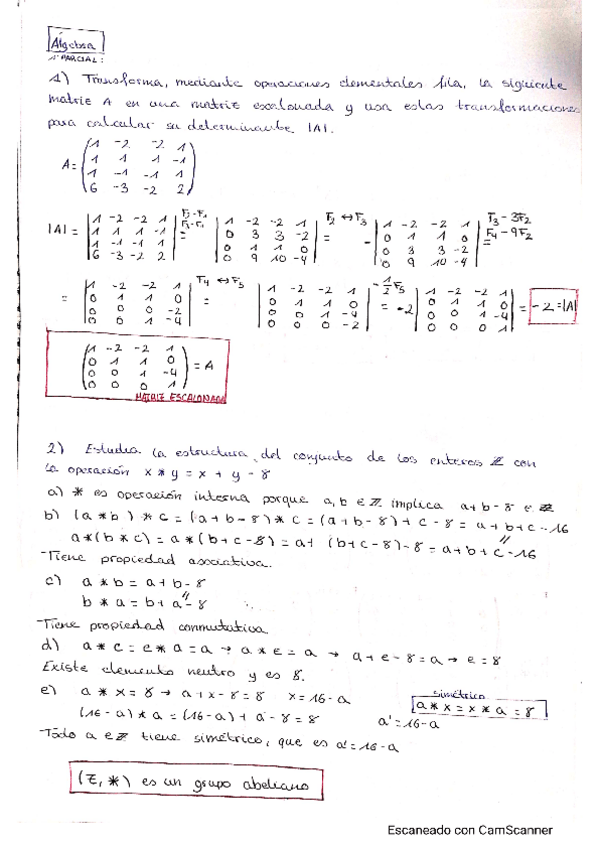 Álgebra
1º PARCIAL:
1) Transforma, mediante operaciones elementales fila, la siguiente
matriz A en una matriz escalonada y usa estas transformaciones
para calcular su determinante |A|.
1 -2 -2 1
A= 1 1 1 -1
1 -1 -1 1
6 -3 -2 2
|A| = |1 -2 -2 1; 1 1 1 -1; 1 -1 -1 1; 6 -3 -2 2| = |1 -2 -2 1; 0 3 3 -2; 0 1 1 0; 0 9 10 -4| F2 ↔ F3 = -|1 -2 -2 1; 0 1 1 0; 0 3 3 -2; 0 9 10 -4| F3-3F2 F4-9F2 =
= |1 -2 -2 1; 0 1 1 0; 0 0 0 -2; 0 0 1 -4| F4 ↔ F3 = |1 -2 -2 1; 0 1 1 0; 0 0 1 -4; 0 0 0 -2| -1/2 F3 = -2 |1 -2 -2 1; 0 1 1 0; 0 0 1 -4; 0 0 0 1| = -2 = |A|
1 -2 -2 1
0 1 1 0 = A
0 0 1 -4
0 0 0 1
MATRIZ ESCALONADA
2) Estudia la estructura del conjunto de los enteros ℤ con
la operación x * y = x + y - 8
a) * es operación interna porque a, b ∈ ℤ implica a+b-8 ∈ ℤ
b) (a * b) * c = (a+b-8) * c = (a+b-8) + c - 8 = a+b+c-16
a * (b * c) = a * (b+c-8) = a + (b+c-8) - 8 = a+b+c-16
Tiene propiedad asociativa.
c) a * b = a+b-8
b * a = b+a-8
Tiene propiedad conmutativa
d) a * e = e * a = a → a * e = a → a+e-8 = a → e = 8
Existe elemento neutro y es 8.
e) a * x = 8 → a+x-8 = 8 x = 16-a
simétrico
a * x = x * a = 8
(16-a) * a = (16-a) + a - 8 = 8 a' = 16-a
Todo a ∈ ℤ tiene simétrico, que es a' = 16-a
(ℤ, *) es un grupo abeliano
Escaneado con CamScanner